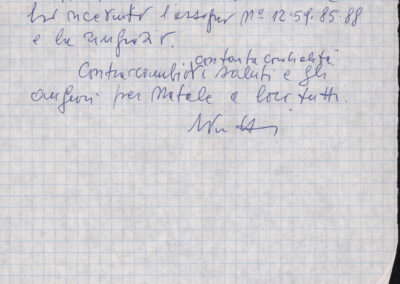 ho ricevuto l'assegno Nº 12.59.85.88
e la ringrazio.
con tanta cordialità
Contraccambio i saluti e gli
auguri per Natale a loro tutti.